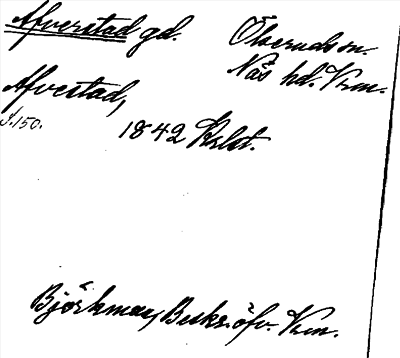 Afverstad gd. Ölseruds sn.
Näs hd. Vrm.
Afvestad,
S. 150.
1842 Krlst.
Björkman, Beskr. öfv. Vrm.